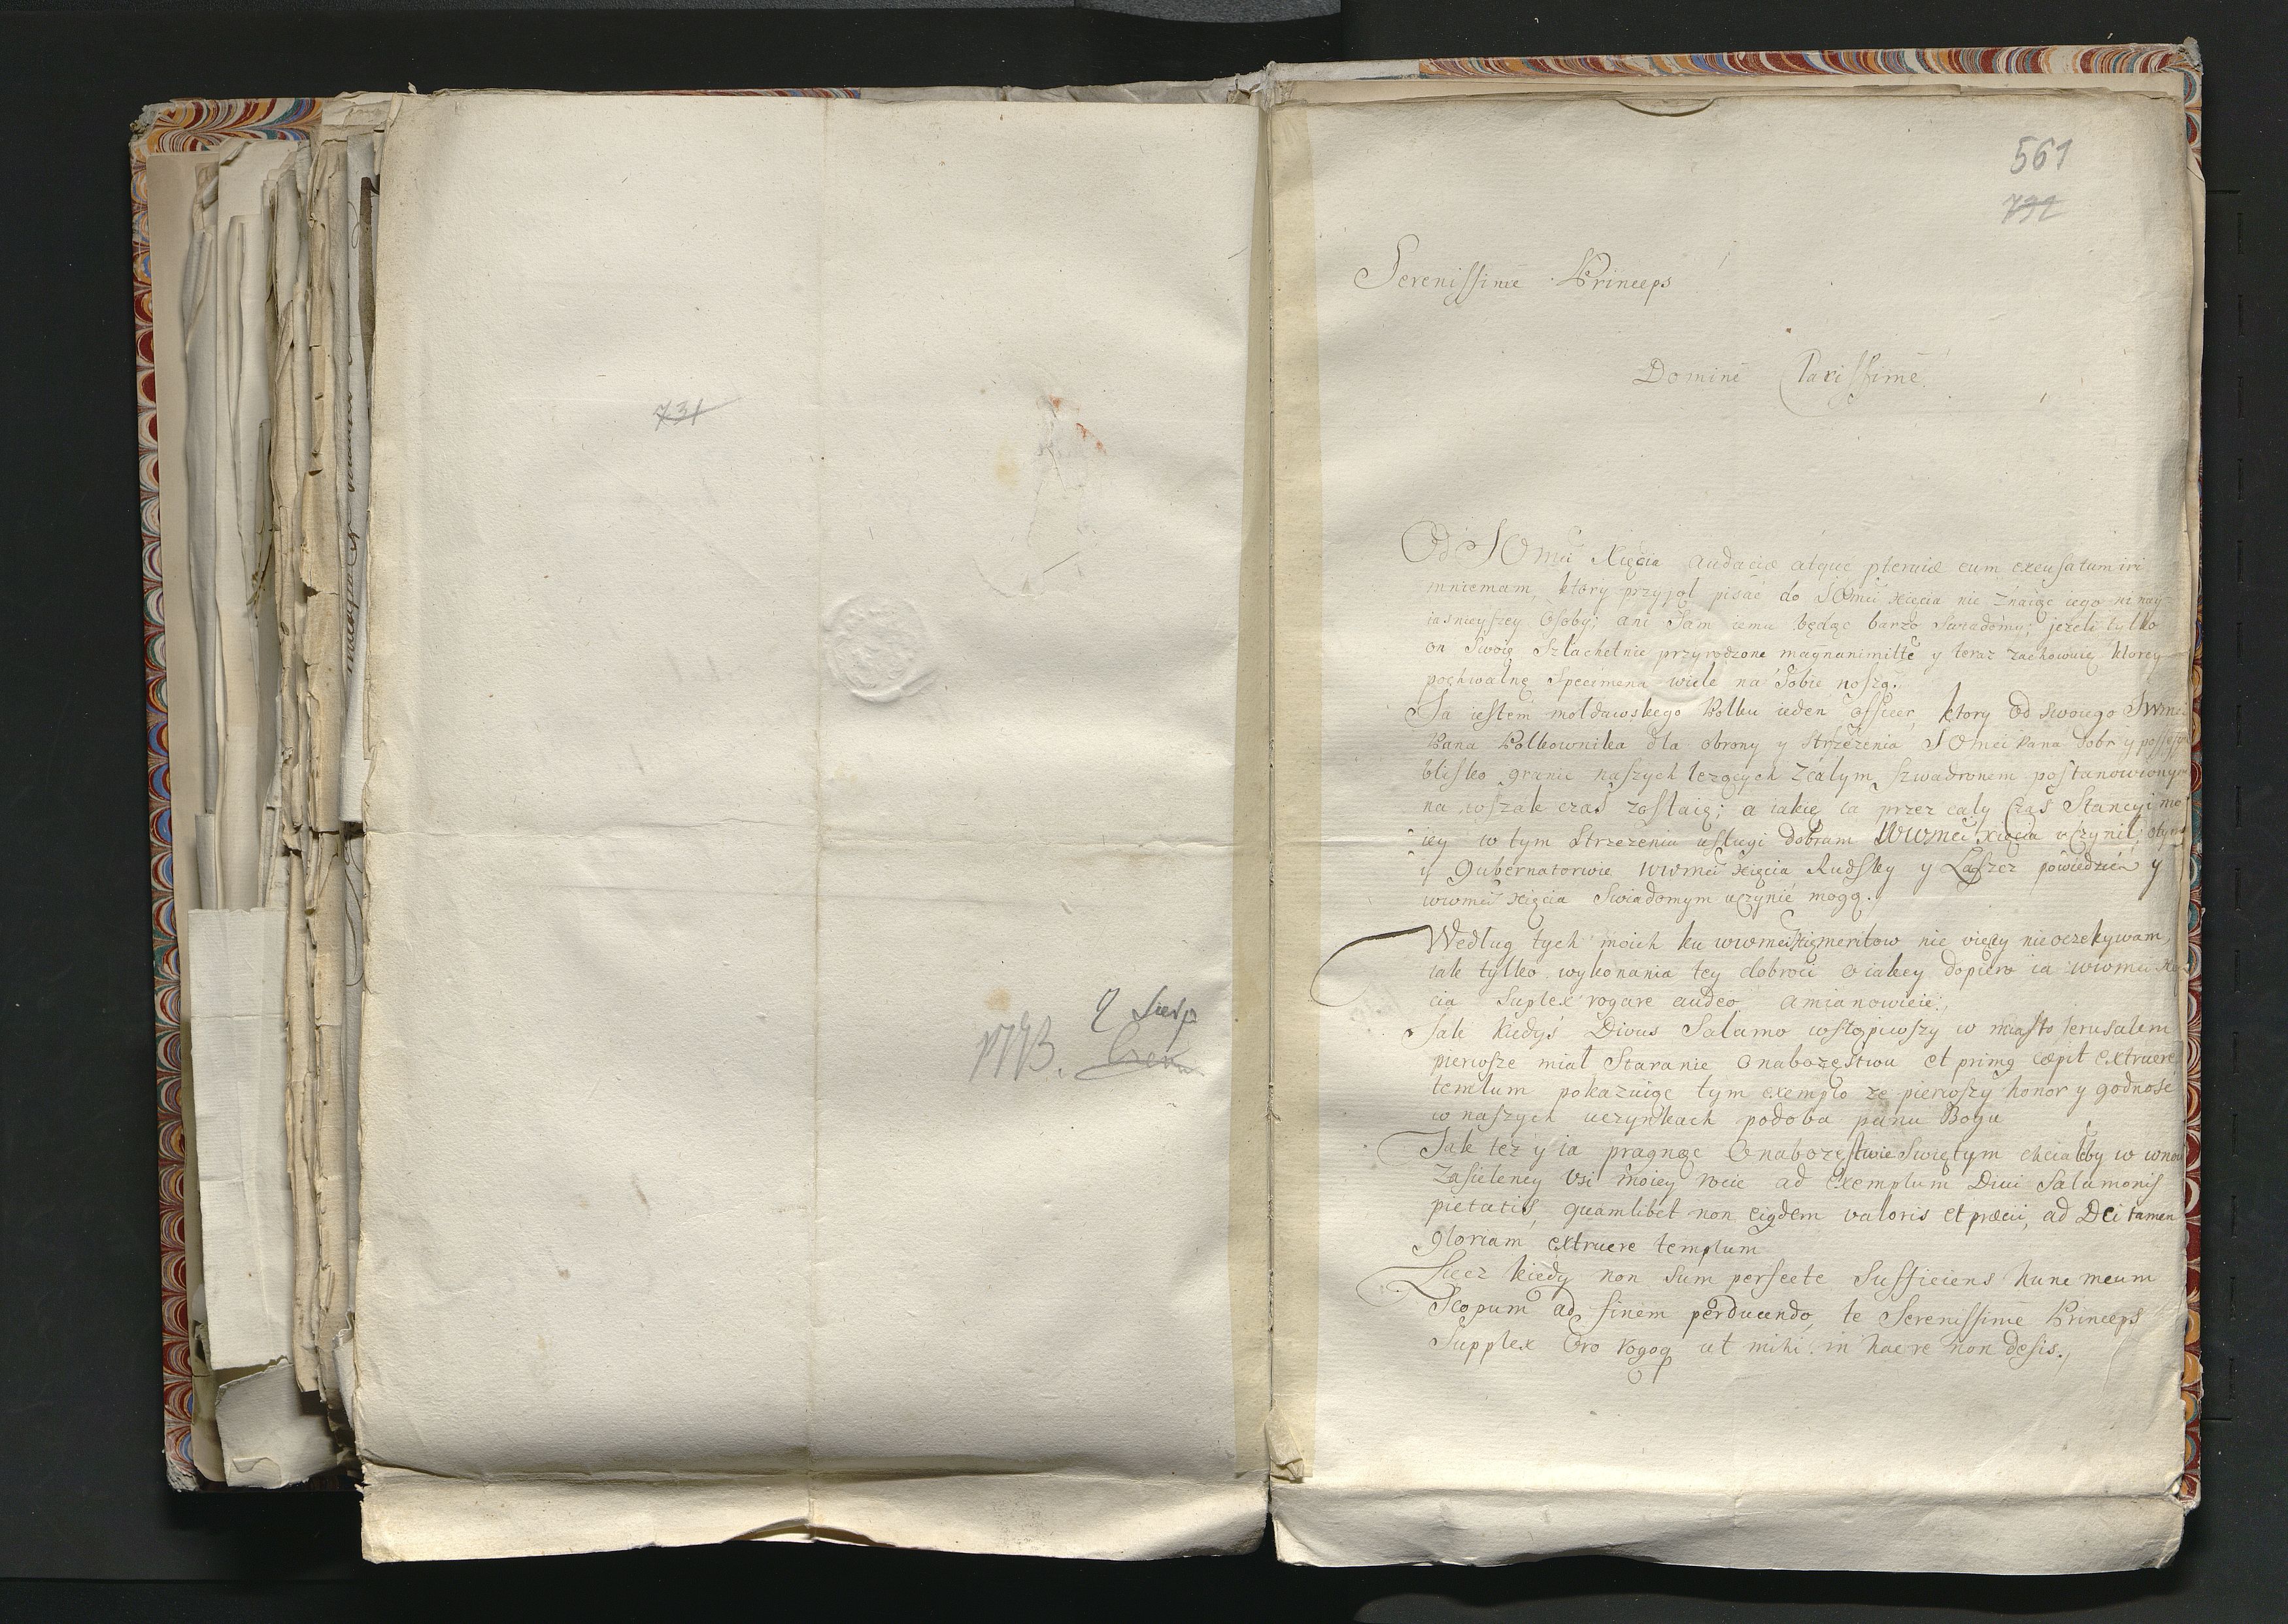 731
2 Sierp
1793.
561
732
Serenissime Princeps
Domine Clarissime
Od JOmci Xięcia audaciæ atque pleniæ eum excusatum iri
mniemam, ktory przyjął pisać do JOmci xięcia nie znaiąc iego ni nay-
iasnieyszey Osoby; ani Sam iemu będąc barzo Swiadomy; jezeli tylko
on Swoię Szlachetnie przyrodzone magnanimitte y teraz zachowuie, ktorey
pochwalnę Specimena wiele na Sobie noszą.
Ja iestem moldawskego Polku ieden Officer, ktory Od Swoiego
Pana Polkownika dla obrony y Strzezenia JOmci Pana dobr y
blisko granic naszych lezących zcałym Szwadronem postanowionym
na koszak czas zostaię; a iakie ia przez cały Czas Stancyi mo
iey w tym Strzezenia usługi dobram WWmci xięcia uczynił,
ij Gubernatorwie WWmci xięcia Rudsky y Laszez powiedzieć y
wwmci xięcia Swiadomym uczynić mogą.
Według tych moich ku wwmci meritow nic więcy nieoczekywam,
iak tylko wykonania tey dobroci o iakey dopiero ia wwmci
cia Suplex rogare audeo, amianowicie:
Jak kiedyś Divus Salamo wstąpiwszy w miasto Jerusalem
pierwsze miał Staranie Onabozęstwu et primę cœpit extruere
templum pokazuiąc tym exemplo ze pierwszy honor y godność
w naszych uczynkach podoba panu Bogu
Jak też y ia pragnąc Onabozęstwie Swiętym chciałby w
Zasieleney vsi moiey ad exemplum Divi Salamonis
pietatis, quamlibet non eiqdem valoris et præcii, ad Dei tamen
gloriam extruere templum
Lecz kiedy non Sum perfecte Sufficiens hunc meum
Scopum ad finem perducendo, te Serenissime Princeps
Supplex Oro rogoq ut mihi in hac re non desis.